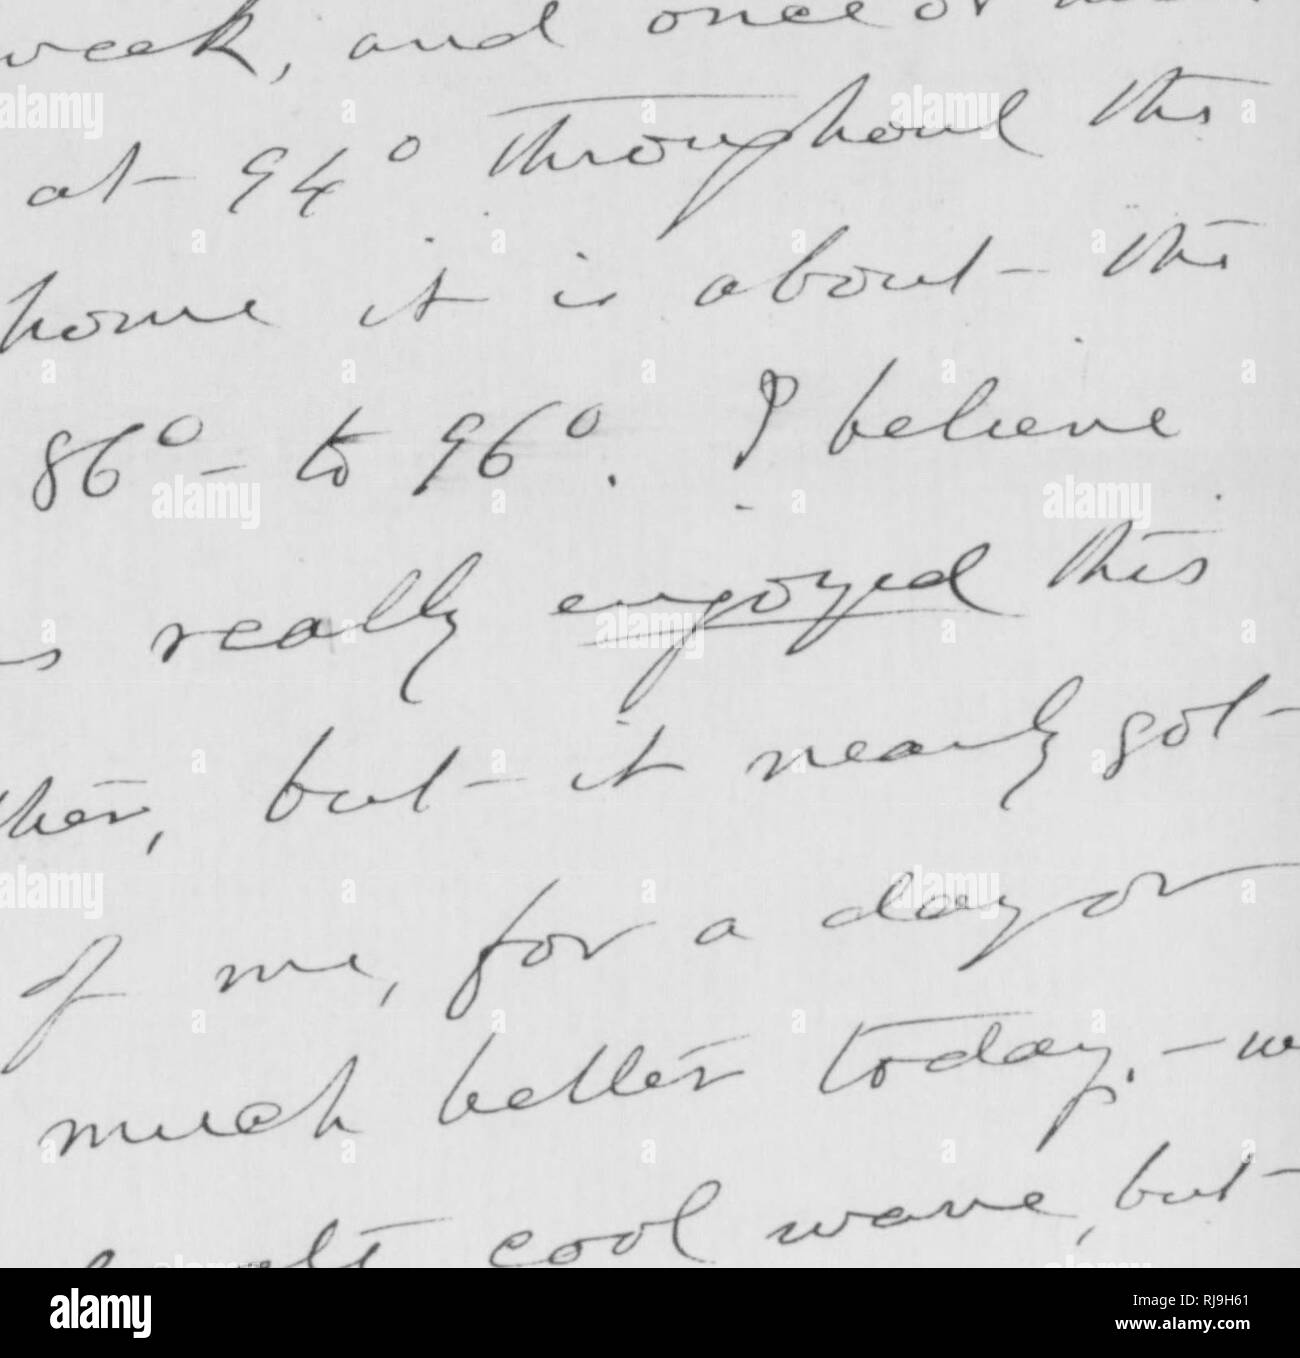 week, and once or
at 94° throughout the
home it is about the
86° - to 96°. I believe
really enjoyed this
but it nearly got
of me, for a day or
much better today, -
cool wave, but
alamy
Image ID: RJ9H61
www.alamy.com